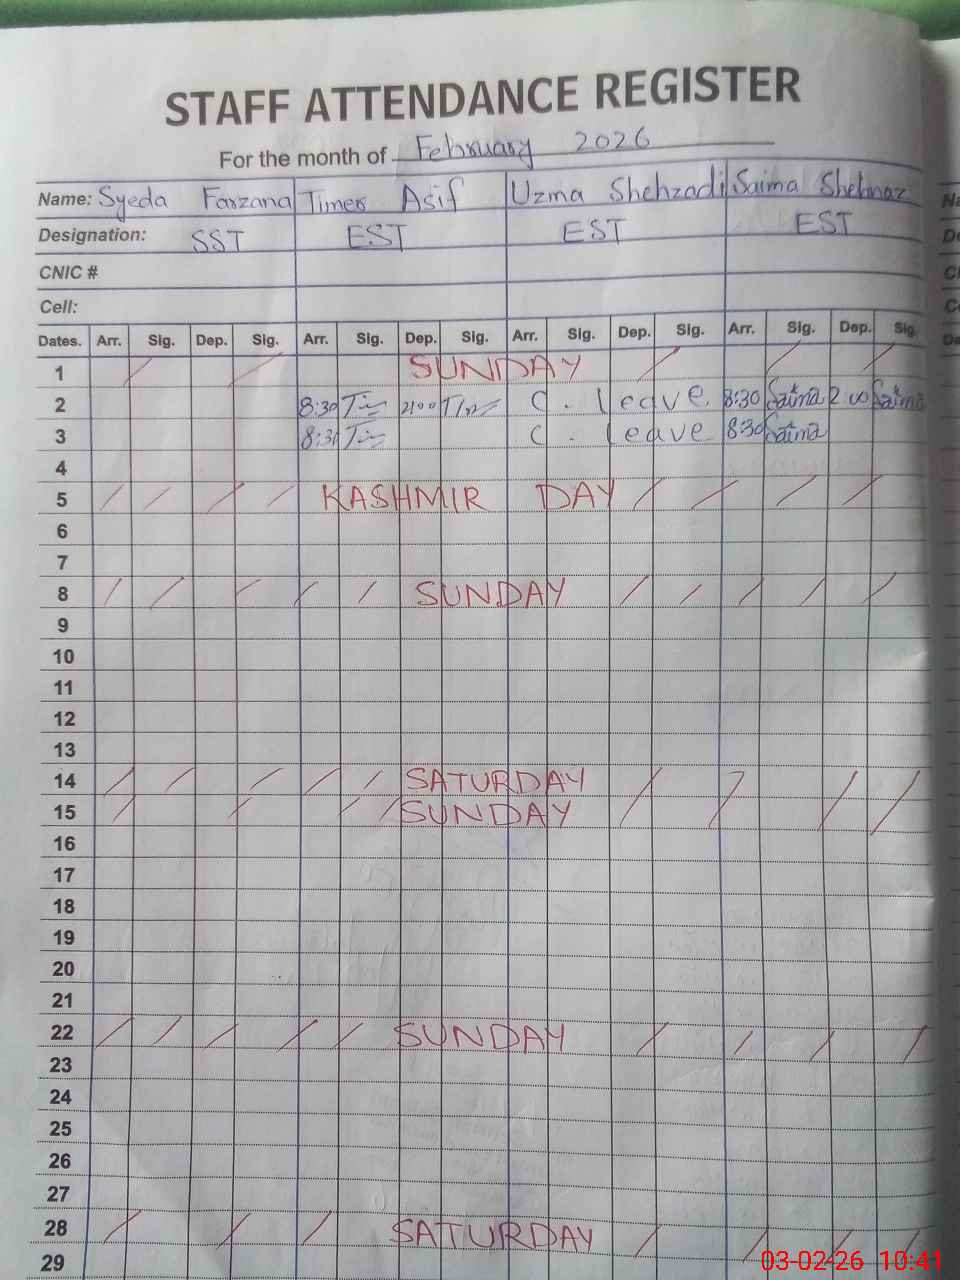 STAFF ATTENDANCE REGISTER
For the month of February 2026
Name: Syeda Farzana Timers Asif Uzma Shehzadi Saima Shehnaz
Designation: SST EST EST EST
CNIC #
Cell:
Dates. Arr. Sig. Dep. Sig. Arr. Sig. Dep. Sig. Arr. Sig. Dep. Sig. Arr. Sig. Dep. Sig.
1 SUNDAY
2 8:30 2:00 C. leave 8:30 Saima 2:00 Saima
3 8:30 C. leave 8:30 Saima
4
5 KASHMIR DAY
6
7
8 SUNDAY
9
10
11
12
13
14 SATURDAY
15 SUNDAY
16
17
18
19
20
21
22 SUNDAY
23
24
25
26
27
28 SATURDAY
29
03-02-26 10:41